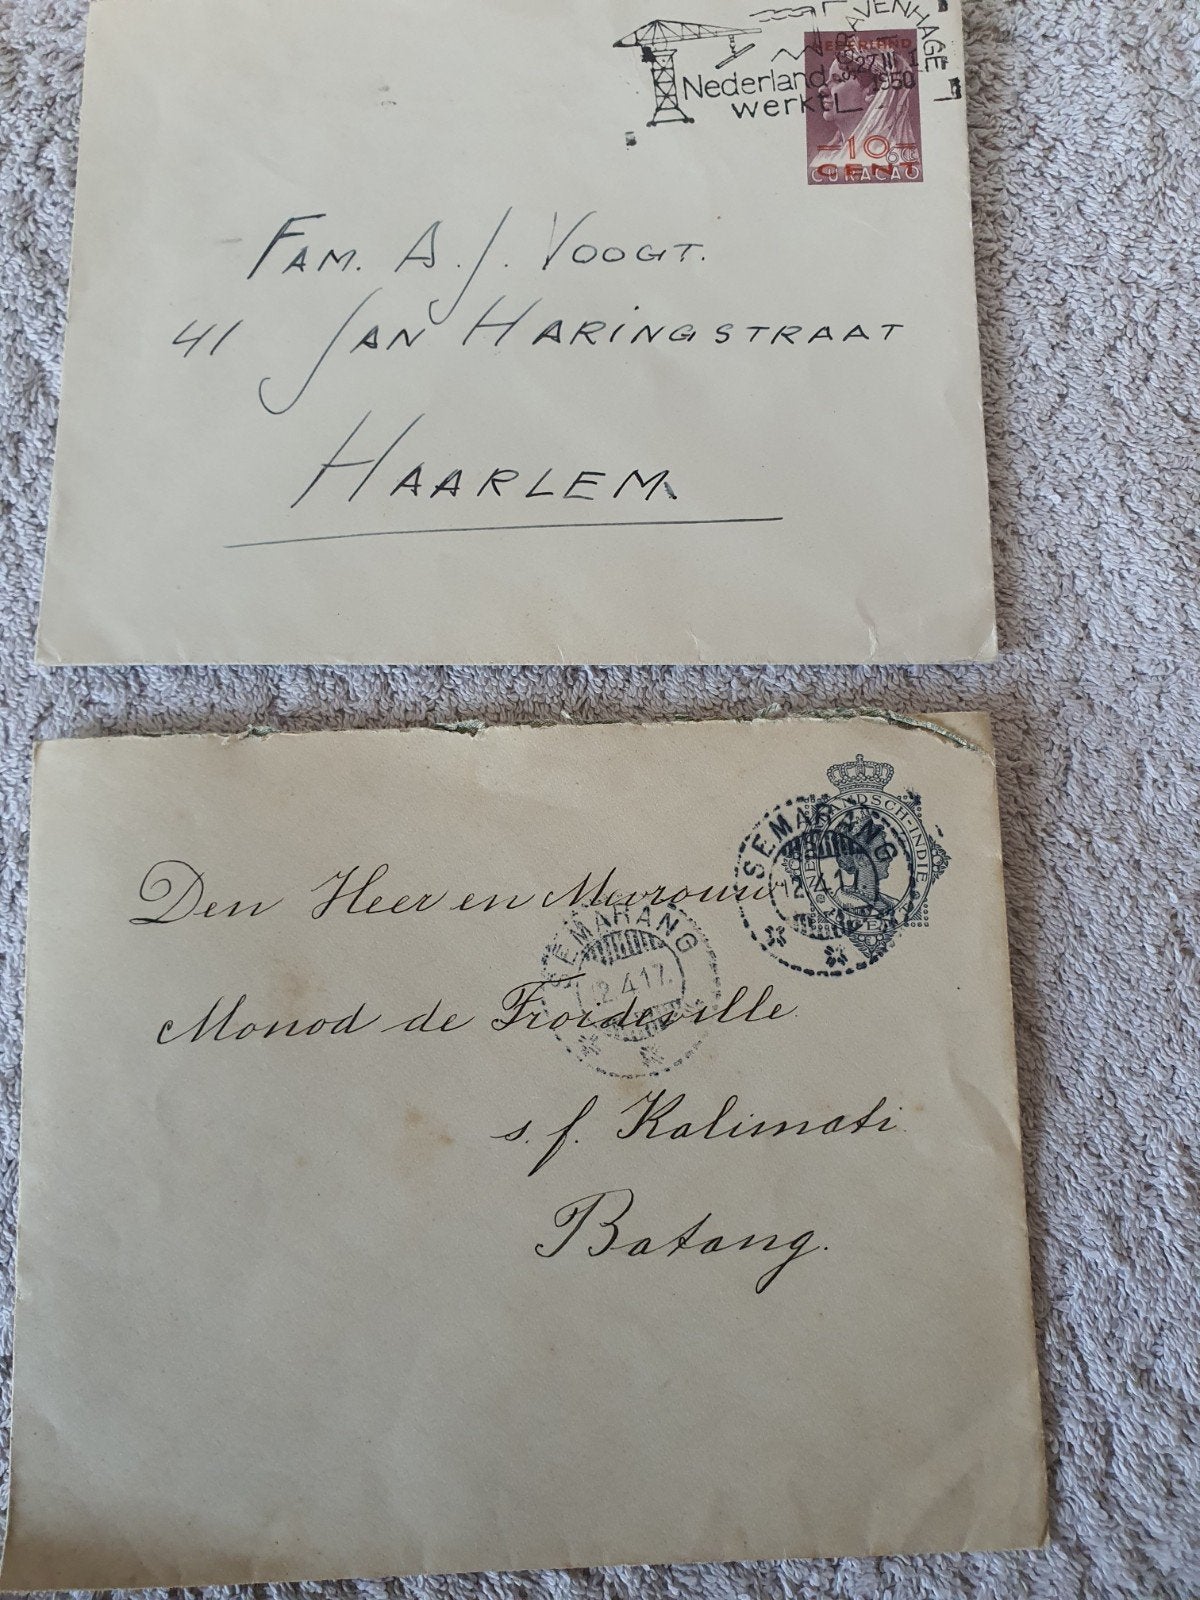 'S-GRAVENHAGE
27 III
1950
Nederland
werkt
NEDERLAND
10
CENT
6 CT
CURACAO
FAM. A. J. VOOGT.
41 JAN HARINGSTRAAT
HAARLEM.
NEDERLANDSCH-INDIE
SEMARANG
12.4.17
Den Heer en Mevrouw
SEMARANG
12.4.17.
Monod de Froideville.
s. f. Kalimati.
Batang.